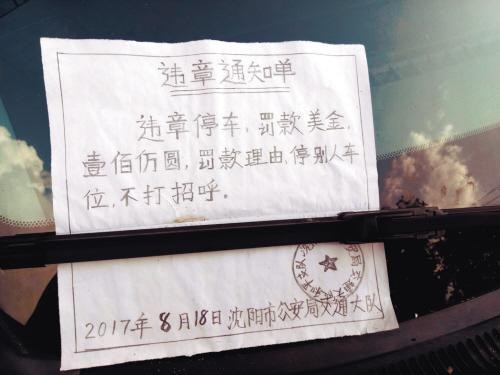 违章通知单
违章停车，罚款美金，
壹佰仿圆，罚款理由，停别人车
位，不打招呼。
2017年8月18日沈阳市公安局交通大队